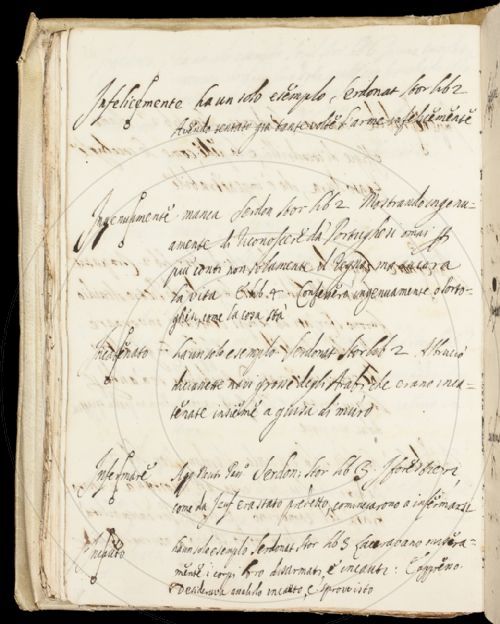 Infelicemente ha un solo esempio. Serdonat. stor. lib. 2
Avendo tentato già tante volte l'arme infelicemente
Ingenuamente. manca Serdon. stor. lib. 2. Mostrando ingenu-
amente di riconoscere da Portughesi omai
più conti non solamente il Regno, ma ancora
la vita. E lib. 4. Confessero ingenuamente o Porto-
ghesi, come la cosa sta
Incatenato ha un solo esempio. Serdonat. stor. lib. 2. Abbruciò
diciasette navi grosse degli Arabi che erano inca-
tenate insieme a guisa di muro
Infermare Serdon: stor. lib. 3. I forestieri,
come da era stato predetto, cominciarono a infermarsi
Incauto ha un solo esempio Serdonat. stor. lib. 3. Laceravano misera-
mente i corpi loro disarmati, e incauti: E appresso.
assalirlo incauto, e sprovvisto